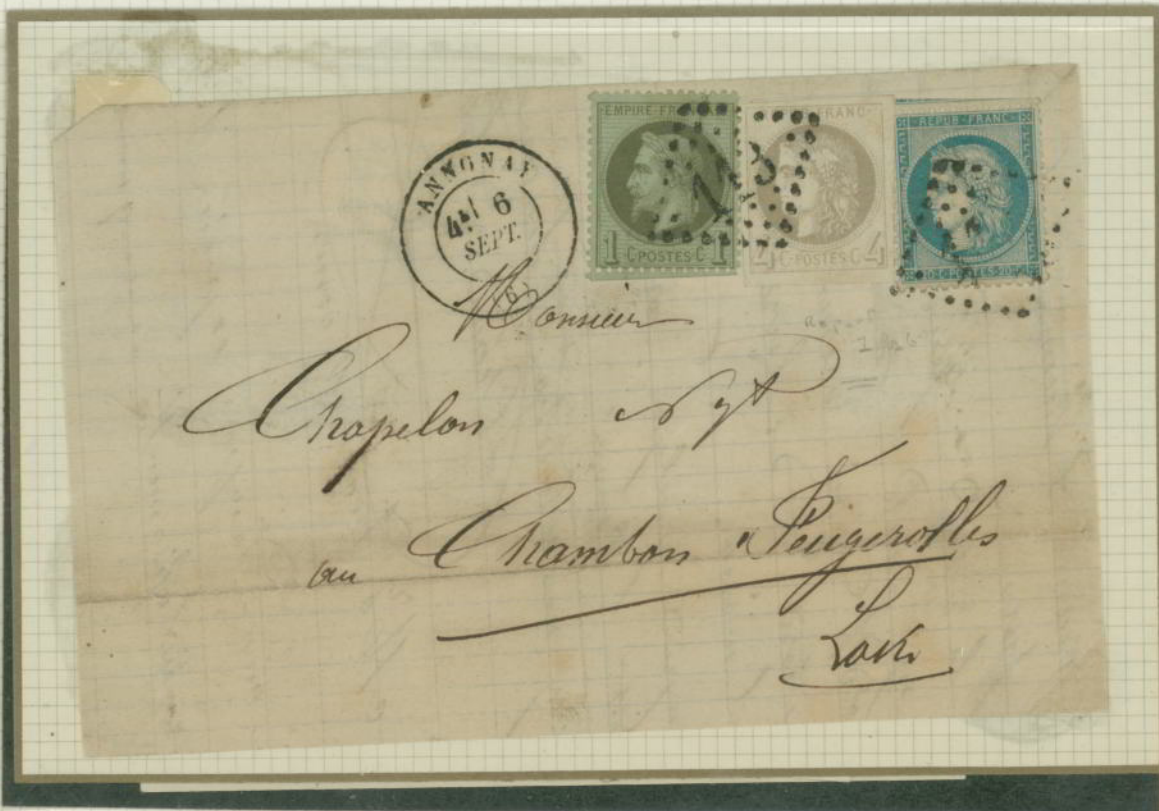 ANNONAY
6
SEPT.
(6)
EMPIRE FRANÇAIS
1 C POSTES C 1
FRANC
4 C POSTES C 4
REPUB FRANC
20 C POSTES 20 C
Monsieur
Chapelon
au Chambon Feugerolles
Loire